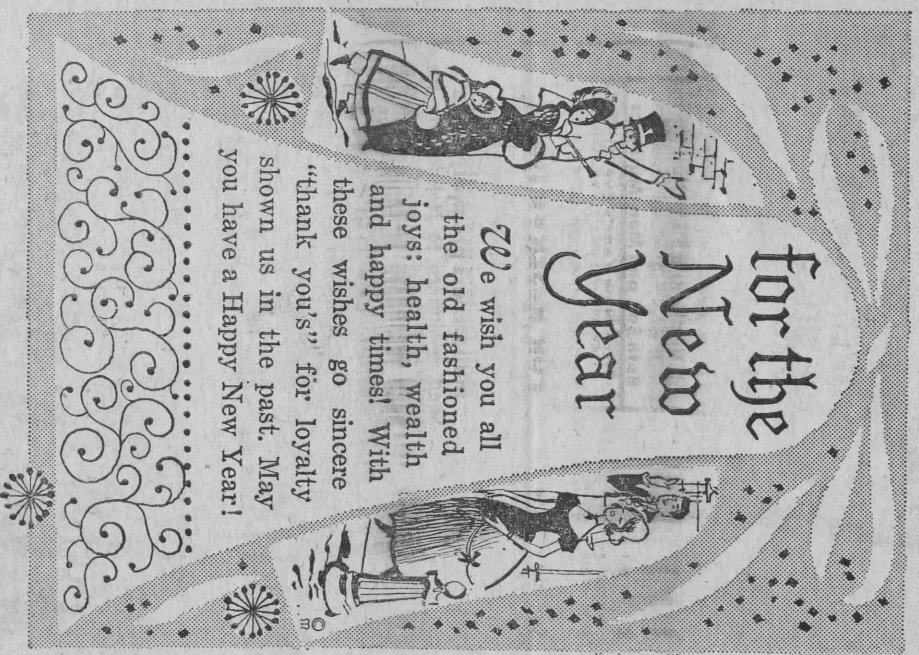 for the
New
Year
We wish you all
the old fashioned
joys: health, wealth
and happy times! With
these wishes go sincere
"thank you's" for loyalty
shown us in the past. May
you have a Happy New Year!
© m